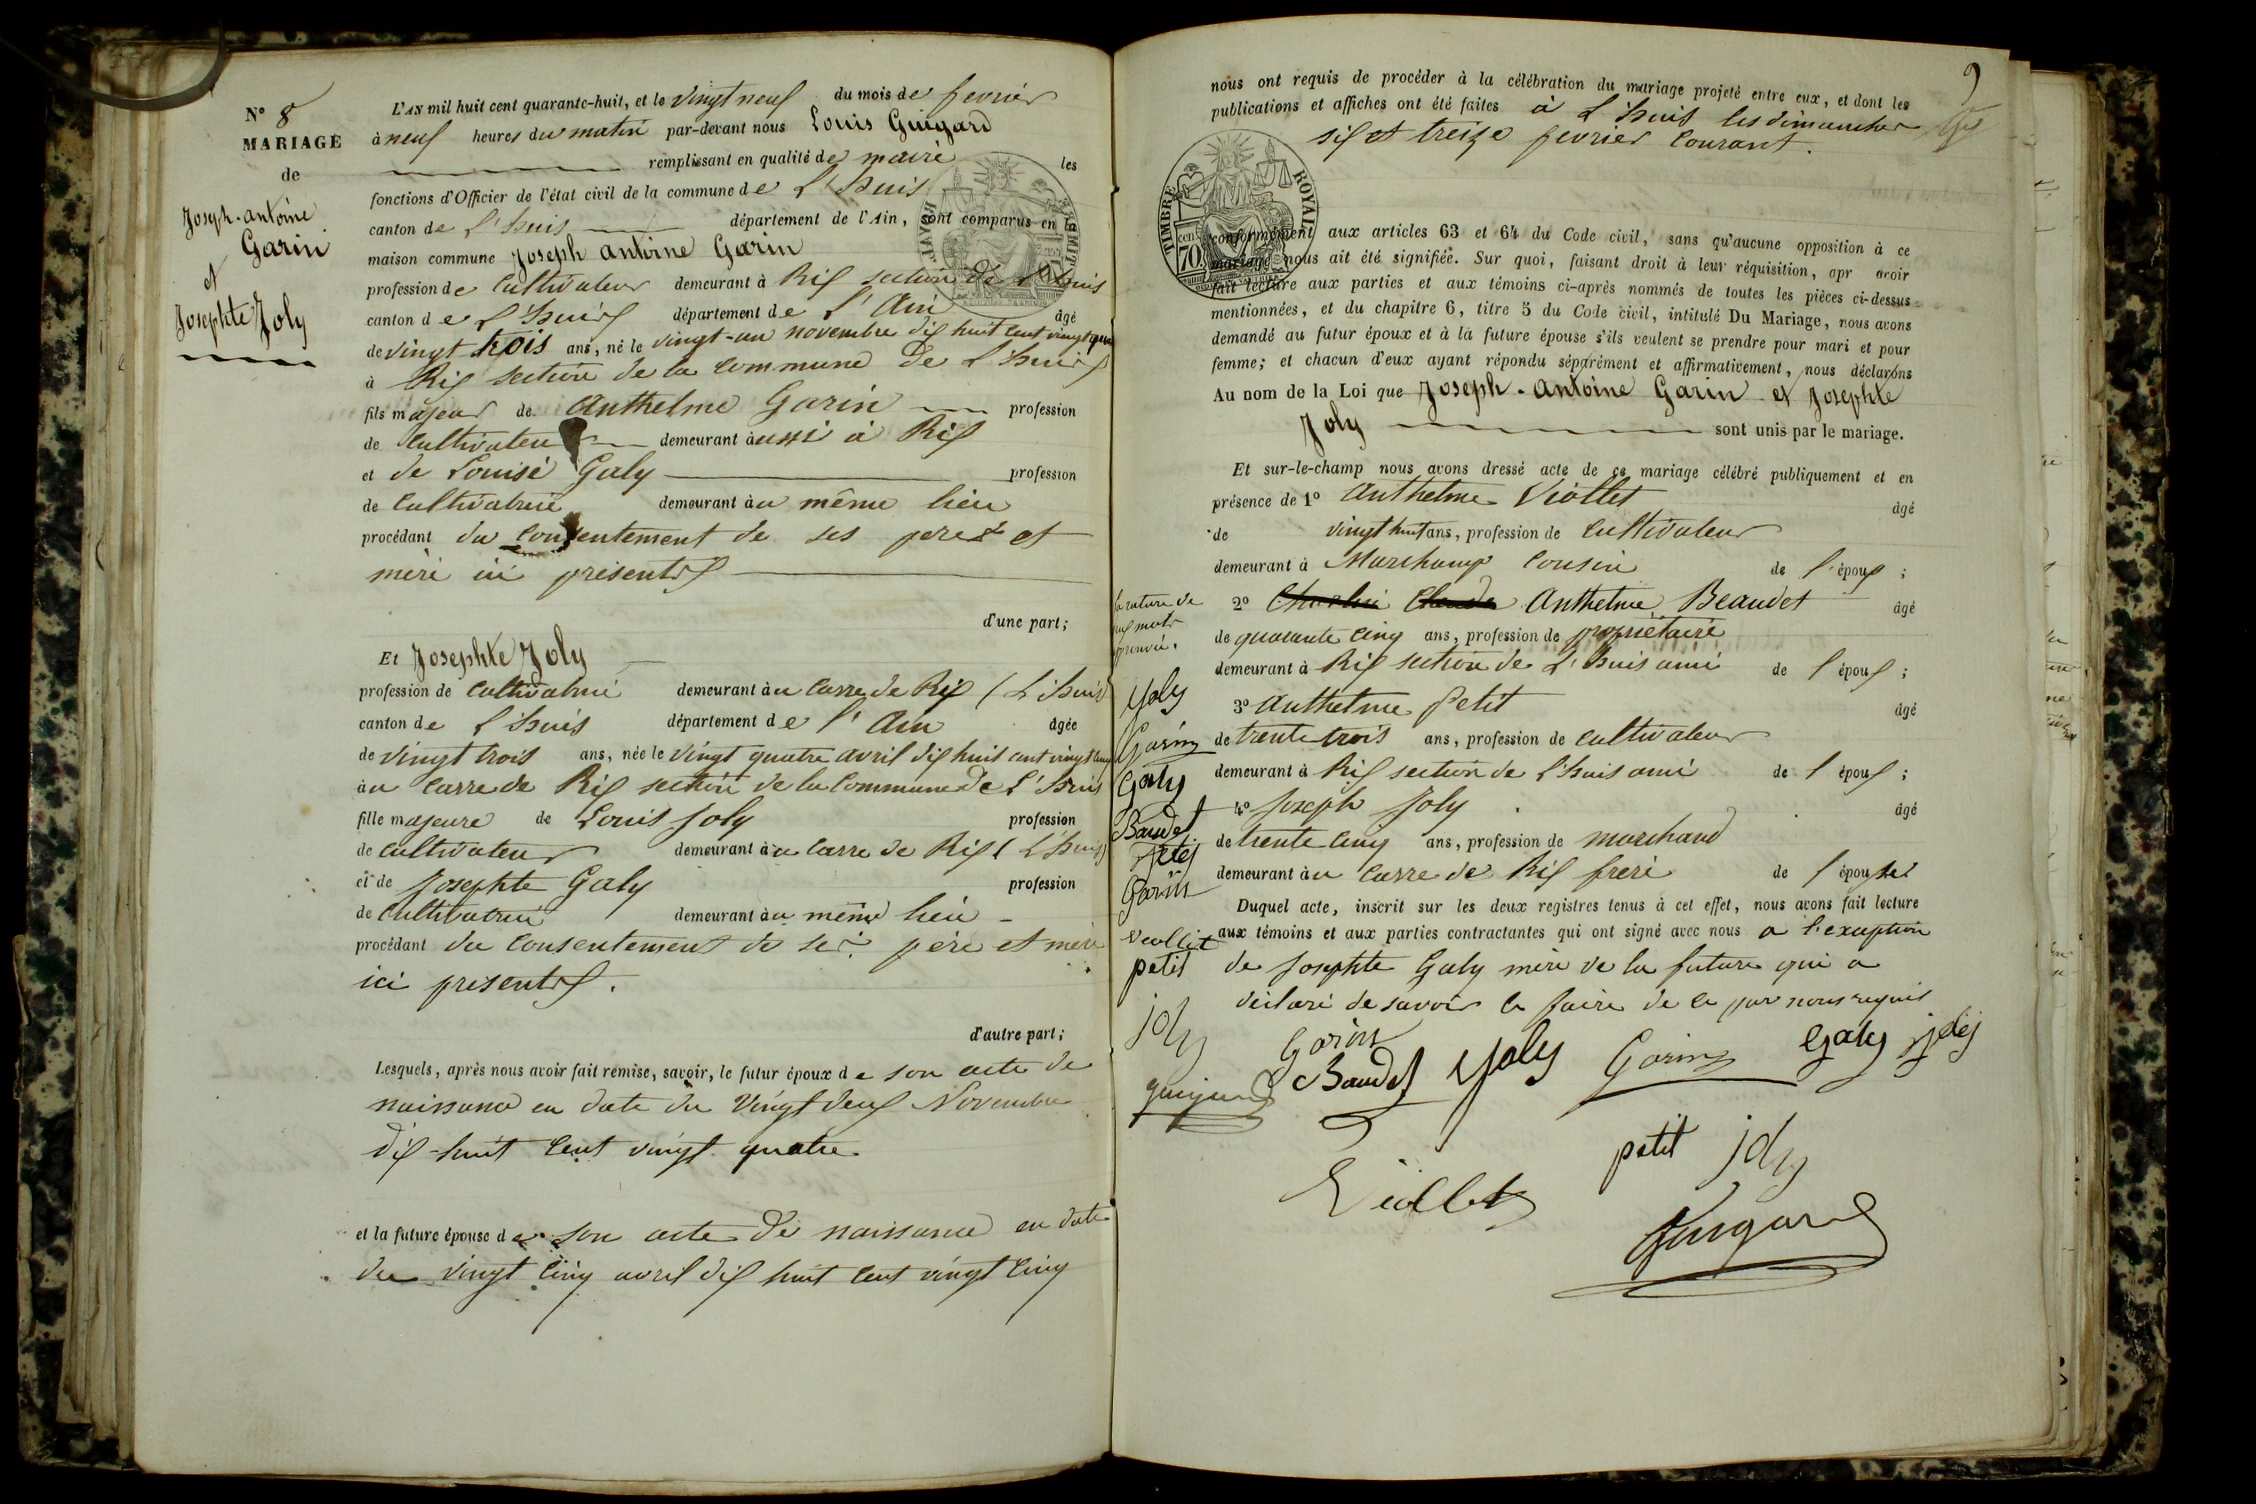 N° 8
MARIAGE
de
Joseph-antoine
Garin
et
Josephte Joly
L'AN mil huit cent quarante-huit, et le vingt neuf du mois de fevrier
à neuf heures du matin par-devant nous Louis Guigard
remplissant en qualité de maire les
fonctions d'Officier de l'état civil de la commune de L'huis
canton de L'huis département de l'Ain, sont comparus en
maison commune Joseph antoine Garin
profession de Cultivateur demeurant à Rix section de L'huis
canton de L'huis département de l'Ain âgé
de vingt trois ans, né le vingt-un novembre dix huit cent vingt quatre
à Rix section de la commune de L'huis
fils majeur de Anthelme Garin profession
de cultivateur demeurant aussi à Rix
et de Louise Galy profession
de Cultivatrice demeurant au même lieu
procédant du consentement de ses pere et
mère ici présents
d'une part;
Et Josephte Joly
profession de Cultivatrice demeurant au Carre de Rix (L'huis)
canton de L'huis département de l'Ain âgée
de vingt trois ans, née le vingt quatre avril dix huit cent vingt cinq
au Carre de Rix section de la Commune de L'huis
fille majeure de Louis Joly profession
de cultivateur demeurant au Carre de Rix (L'huis)
et de Josephte Galy profession
de Cultivatrice demeurant au même lieu
procédant du consentement de ses père et mère
ici présents.
d'autre part;
Lesquels, après nous avoir fait remise, savoir, le futur époux de son acte de
naissance en date du Vingt deux Novembre
dix-huit cent vingt quatre
et la future épouse de son acte de naissance en date
du vingt cinq avril dix huit cent vingt cinq
9
nous ont requis de procéder à la célébration du mariage projeté entre eux, et dont les
publications et affiches ont été faites à L'huis les dimanches
six et treize fevrier courant.
TIMBRE ROYAL
70
conformément aux articles 63 et 64 du Code civil, sans qu'aucune opposition à ce
mariage nous ait été signifiée. Sur quoi, faisant droit à leur réquisition, apr avoir
fait lecture aux parties et aux témoins ci-après nommés de toutes les pièces ci-dessus
mentionnées, et du chapitre 6, titre 5 du Code civil, intitulé Du Mariage, nous avons
demandé au futur époux et à la future épouse s'ils veulent se prendre pour mari et pour
femme; et chacun d'eux ayant répondu séparément et affirmativement, nous déclarons
Au nom de la Loi que Joseph-Antoine Garin et Josephte
Joly sont unis par le mariage.
Et sur-le-champ nous avons dressé acte de ce mariage célébré publiquement et en
présence de 1° Anthelme Viollet âgé
de vingt huit ans, profession de Cultivateur
demeurant à Marchamp Cousin de l'époux;
2° Anthelme Beaudet âgé
de quarante cinq ans, profession de propriétaire
demeurant à Rix section de L'huis ami de l'époux;
3° Anthelme Petit âgé
de trente trois ans, profession de cultivateur
demeurant à Rix section de L'huis ami de l'époux;
4° Joseph Joly âgé
de trente cinq ans, profession de marchand
demeurant au Carre de Rix frère de l'épouse
Duquel acte, inscrit sur les deux registres tenus à cet effet, nous avons fait lecture
aux témoins et aux parties contractantes qui ont signé avec nous a l'exception
de Josephte Galy mère de la future qui a
déclaré ne savoir le faire de ce par nous requis
la rature de
deux mots
approuvée.
Joly
Garin
Galy
Baudet
Garin
Viollet
petit
joly
guigard
Garin
Baudet Joly Garin Galy
petit joly
Viollet
Guigard